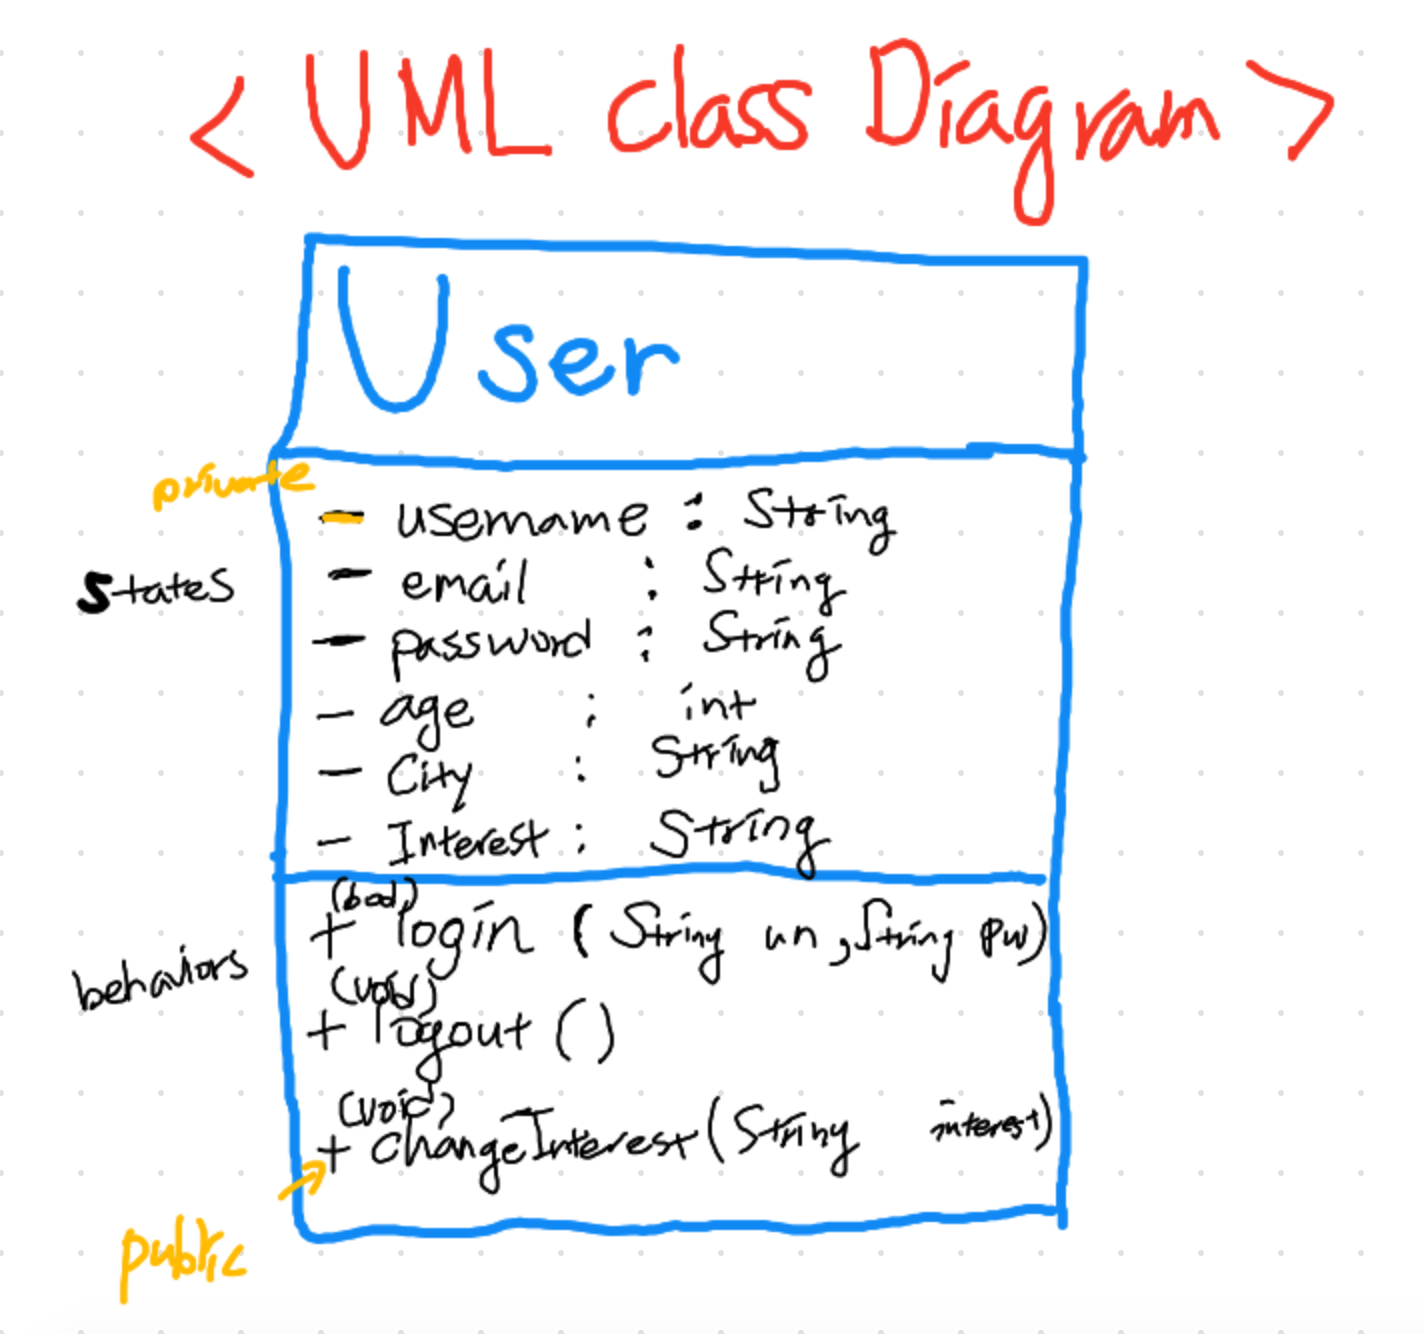 < UML class Diagram >
User
private
- username : String
states
- email : String
- password : String
- age : int
- City : String
- Interest : String
(bool)
+ login ( String un , String pw)
behaviors
(void)
+ logout ()
(void)
+ changeInterest (String interest)
public